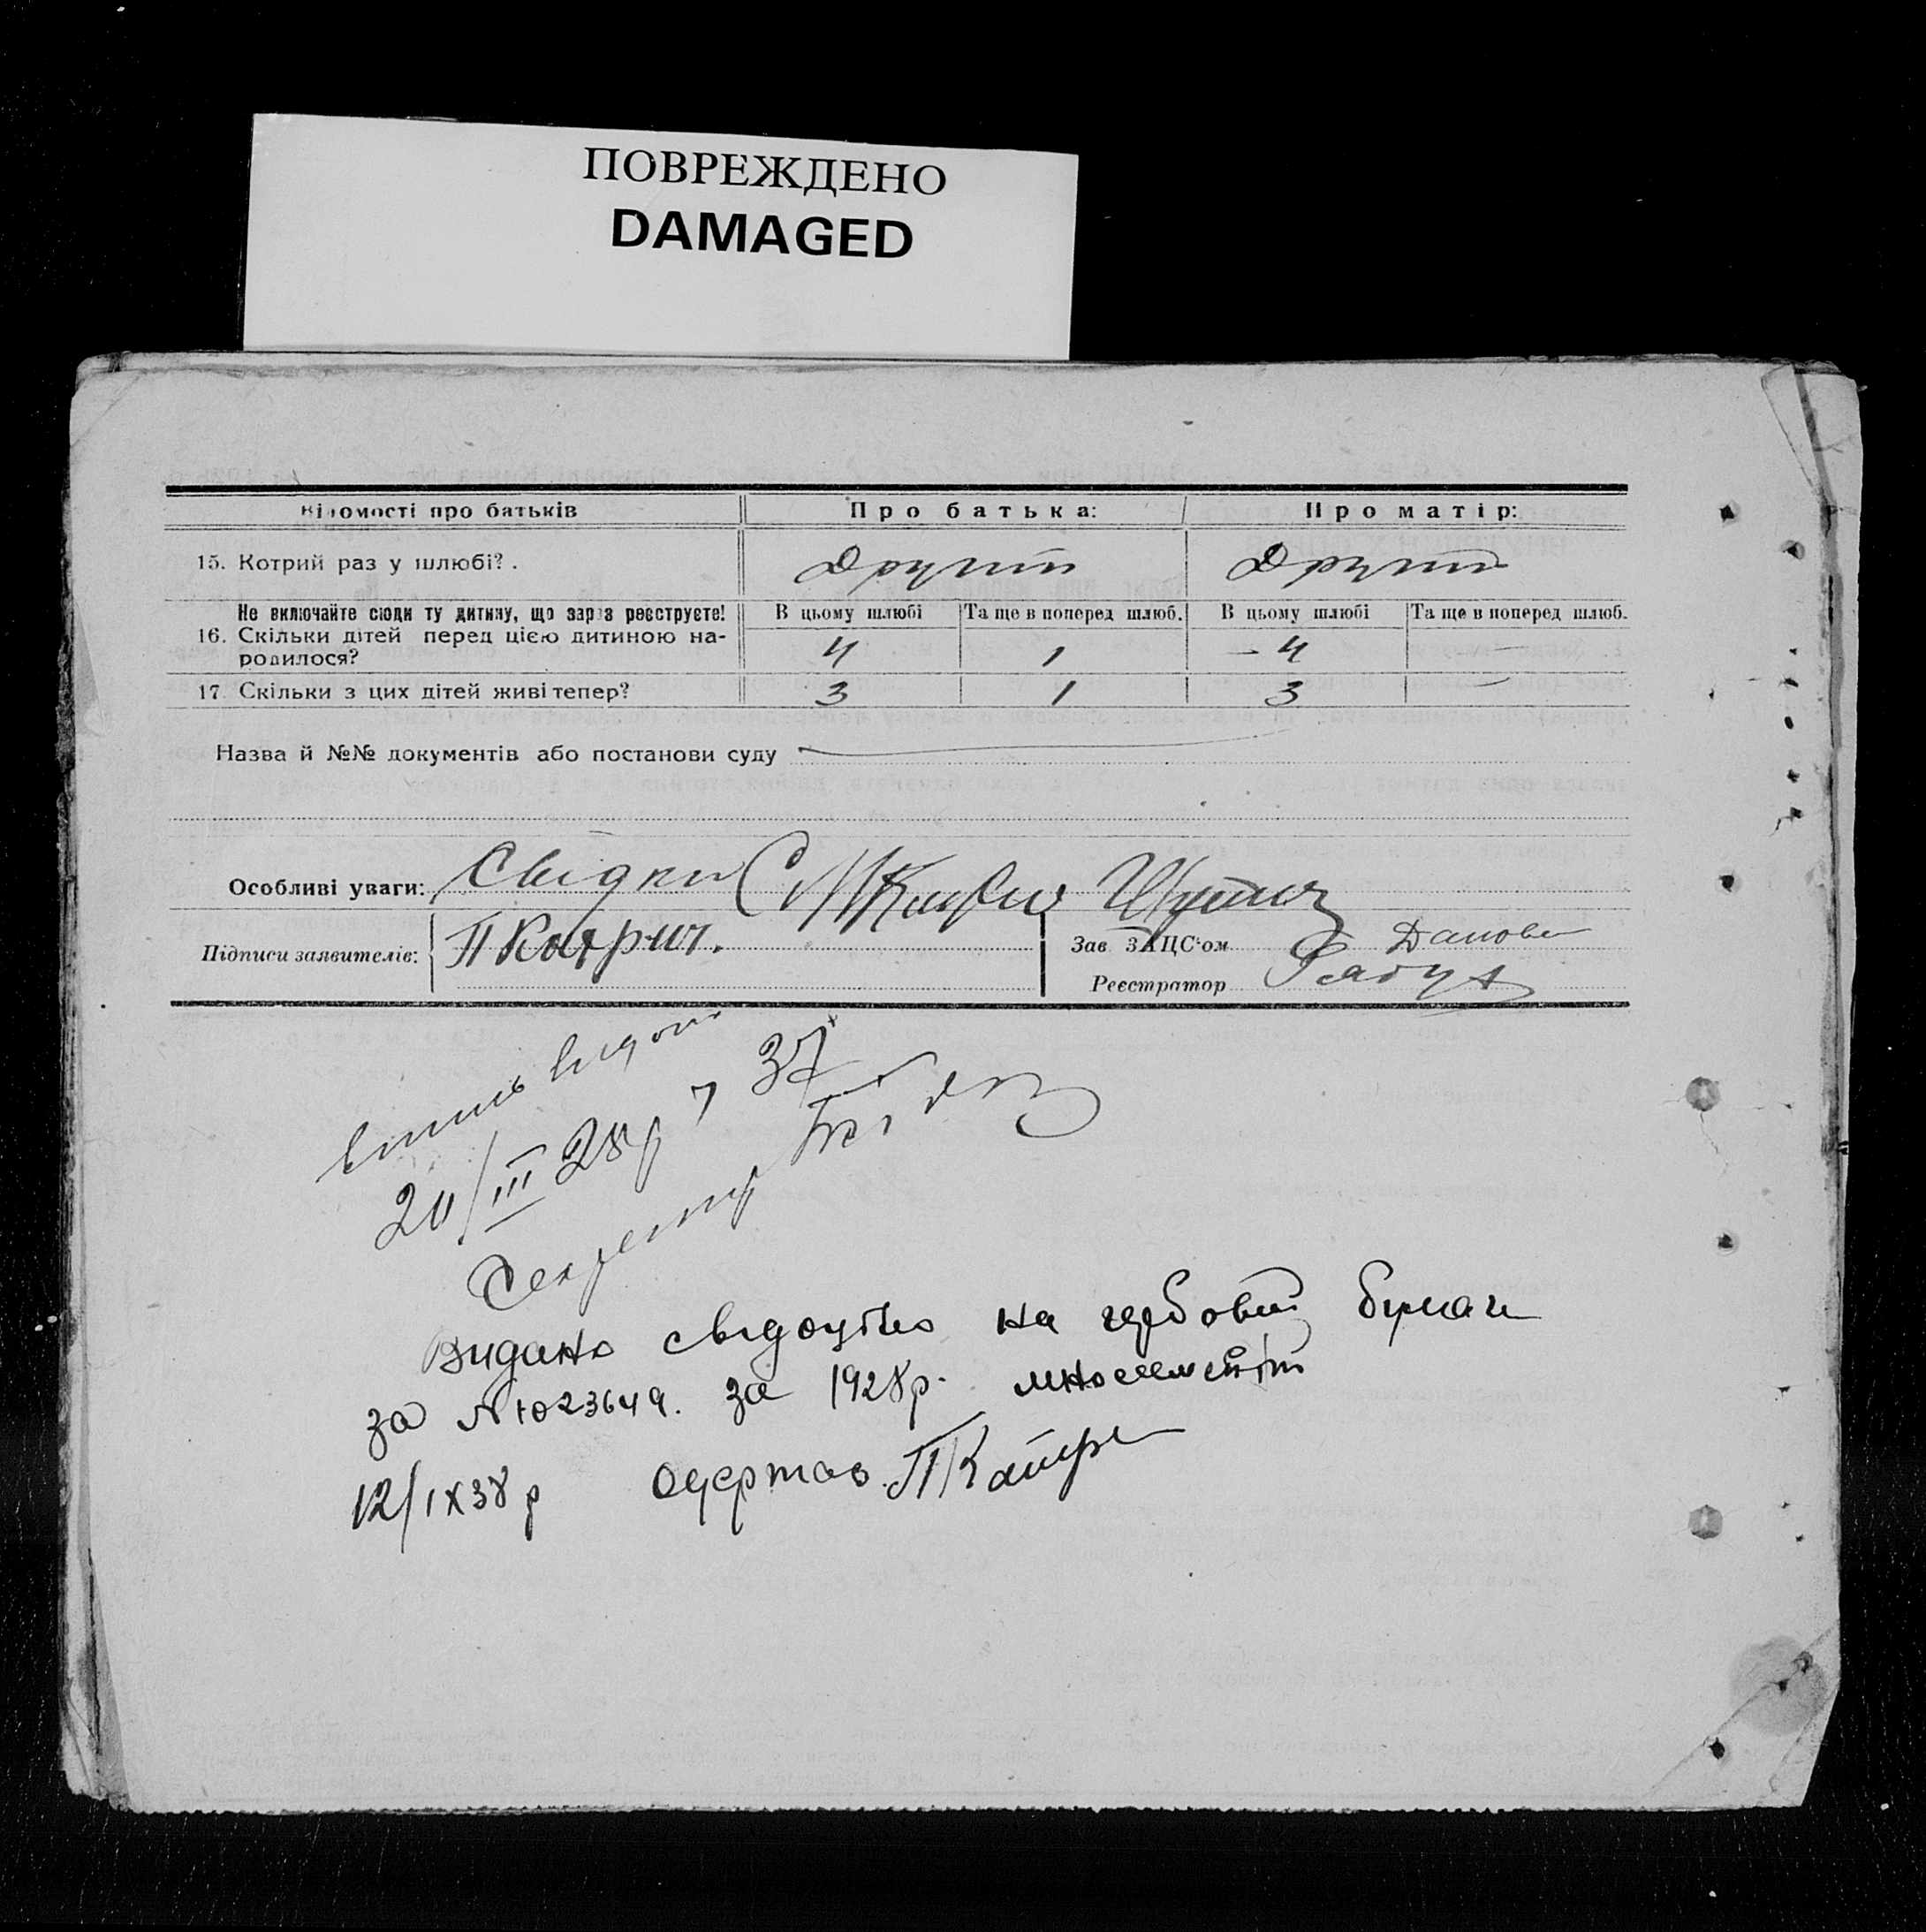 ПОВРЕЖДЕНО
DAMAGED
Відомості про батьків Про батька: Про матір:
15. Котрий раз у шлюбі? . Другий Другий
Не включайте сюди ту дитину, що зараз реєструєте! В цьому шлюбі Та ще в поперед шлюб. В цьому шлюбі Та ще в поперед шлюб.
16. Скільки дітей перед цією дитиною на-
родилося? 4 1 – 4 —
17. Скільки з цих дітей живі тепер? 3 1 3 —
Назва й №№ документів або постанови суду
Особливі уваги: Свідки
Підписи заявителів: П Катрич. Зав ЗАЦС‘ом
Реєстратор
20/III 28р 37
Секретар
Видано свідоцтво на гербовій бумаги
за № 1023649. за 1928р.
12/IX 38 р Одержав П Катри